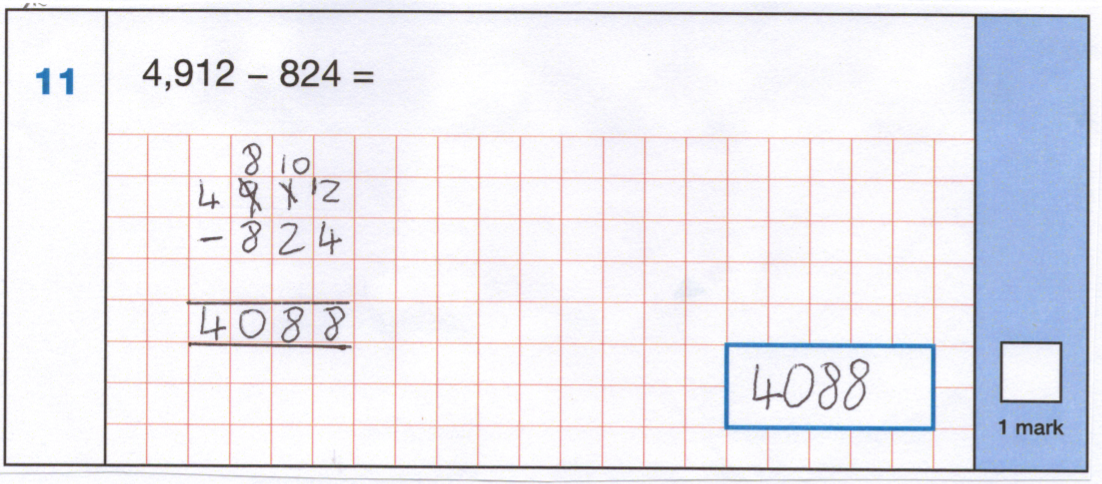 11 4,912 – 824 =
8 10
4 9 1 12
– 8 2 4
4 0 8 8
4088
1 mark